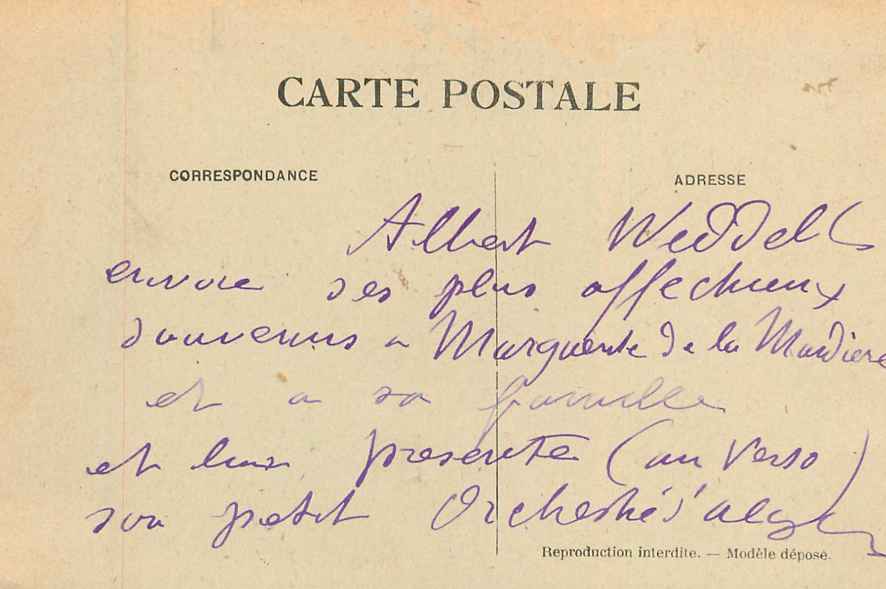 CARTE POSTALE
CORRESPONDANCE
ADRESSE
Albert Weddell
envoie ses plus affectueux
souvenirs a Marguerite de la Mardiere
et a sa famille
et leur presente (au verso)
son petit Orchestre d'alger
Reproduction interdite. — Modèle déposé.